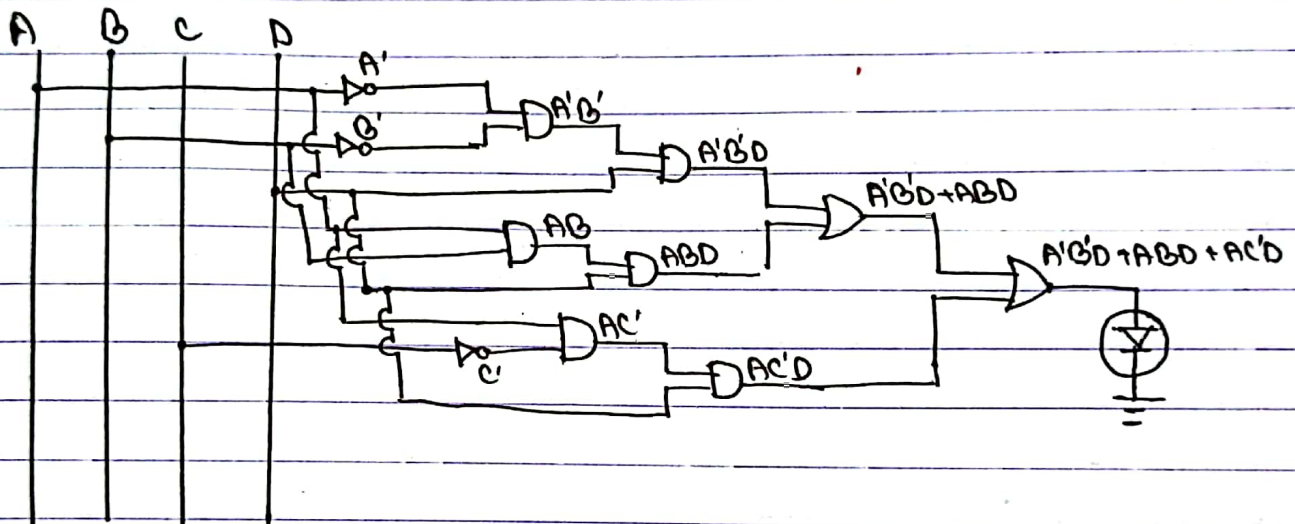 A B C D
A'
B'
A'B'
A'B'D
A'B'D+ABD
AB
ABD
A'B'D+ABD+AC'D
AC'
C'
AC'D